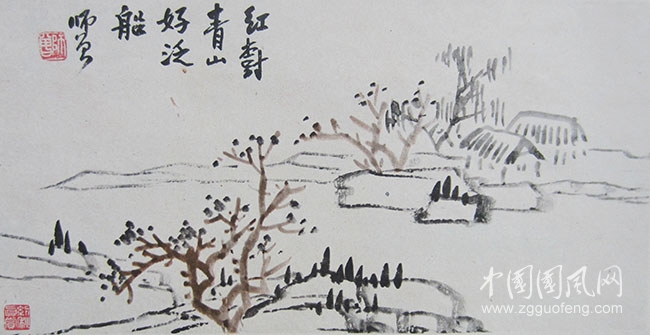 紅樹
青山
好泛
船
师曾
中国國风网
www.zgguofeng.com